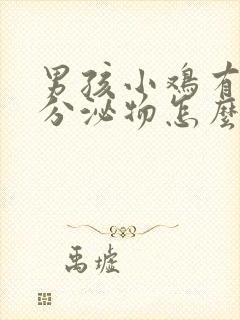 男孩小鸡有
分泌物怎麽
禹墟